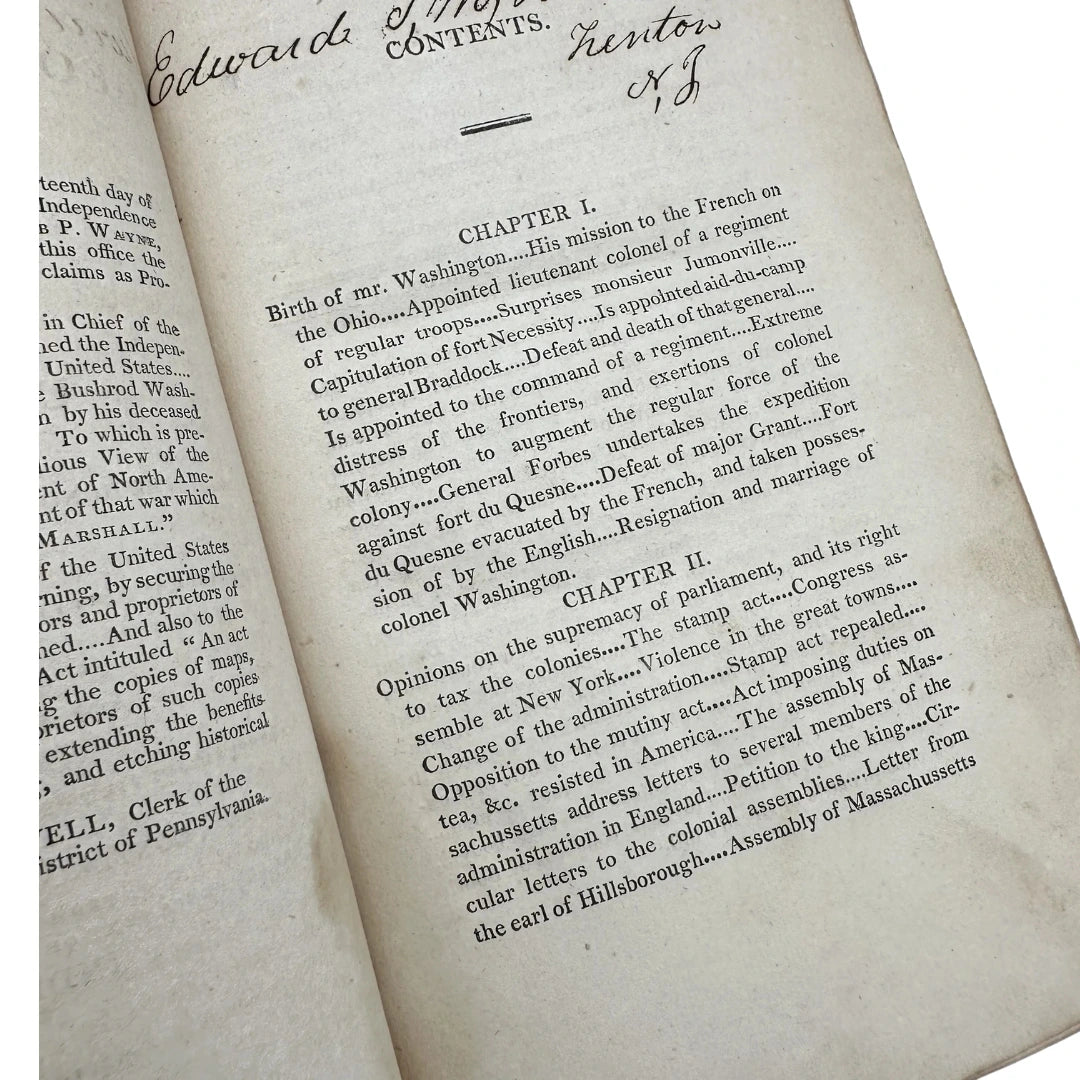 teenth day of
Independence
B P. WAYNE,
this office the
claims as Pro-
in Chief of the
ned the Indepen-
United States....
e Bushrod Wash-
n by his deceased
To which is pre-
ious View of the
ent of North Ame-
nt of that war which
MARSHALL."
f the United States
rning, by securing the
ors and proprietors of
ned....And also to the
Act intituled "An act
g the copies of maps,
prietors of such copies
extending the benefits
, and etching historical
WELL, Clerk of the
istrict of Pennsylvania.
Edward
CONTENTS.
Trenton
N, J
CHAPTER I.
Birth of mr. Washington....His mission to the French on
the Ohio....Appointed lieutenant colonel of a regiment
of regular troops....Surprises monsieur Jumonville....
Capitulation of fort Necessity....Is appointed aid-du-camp
to general Braddock....Defeat and death of that general....
Is appointed to the command of a regiment....Extreme
distress of the frontiers, and exertions of colonel
Washington to augment the regular force of the
colony....General Forbes undertakes the expedition
against fort du Quesne....Defeat of major Grant....Fort
du Quesne evacuated by the French, and taken posses-
sion of by the English....Resignation and marriage of
colonel Washington.
CHAPTER II.
Opinions on the supremacy of parliament, and its right
to tax the colonies....The stamp act....Congress as-
semble at New York....Violence in the great towns....
Change of the administration....Stamp act repealed....
Opposition to the mutiny act....Act imposing duties on
tea, &c. resisted in America....The assembly of Mas-
sachussetts address letters to several members of the
administration in England....Petition to the king....Cir-
cular letters to the colonial assemblies....Letter from
the earl of Hillsborough....Assembly of Massachussetts